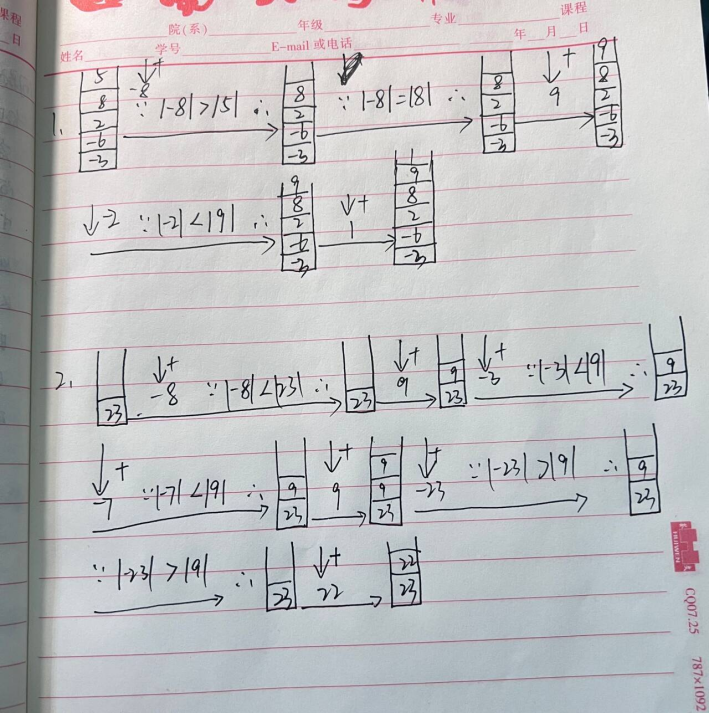 课程
日
院(系) 年级 专业 课程
姓名 学号 E-mail 或电话 年 月 日
1.
5
8
2
-6
-3
↓+
-8
∵ |-8|>|5| ∴
8
2
-6
-3
∵ |-8|=|8| ∴
8
2
-6
-3
↓+
9
9
8
2
-6
-3
↓-2 ∵ |-2|<|9| ∴
9
8
2
-6
-3
↓+
1
1
9
8
2
-6
-3
2.
23
↓+
-8 ∵ |-8|<|23| ∴
23
↓+
9
9
23
↓+
-3 ∵|-3|<|9| ∴
9
23
↓+
-7 ∵|-7|<|9| ∴
9
23
↓+
9
9
9
23
↓+
-23 ∵ |-23|>|9| ∴
9
23
∵ |-23|>|9| ∴
23
↓+
22
22
23
HUIWEN
CQ07.25 787×1092